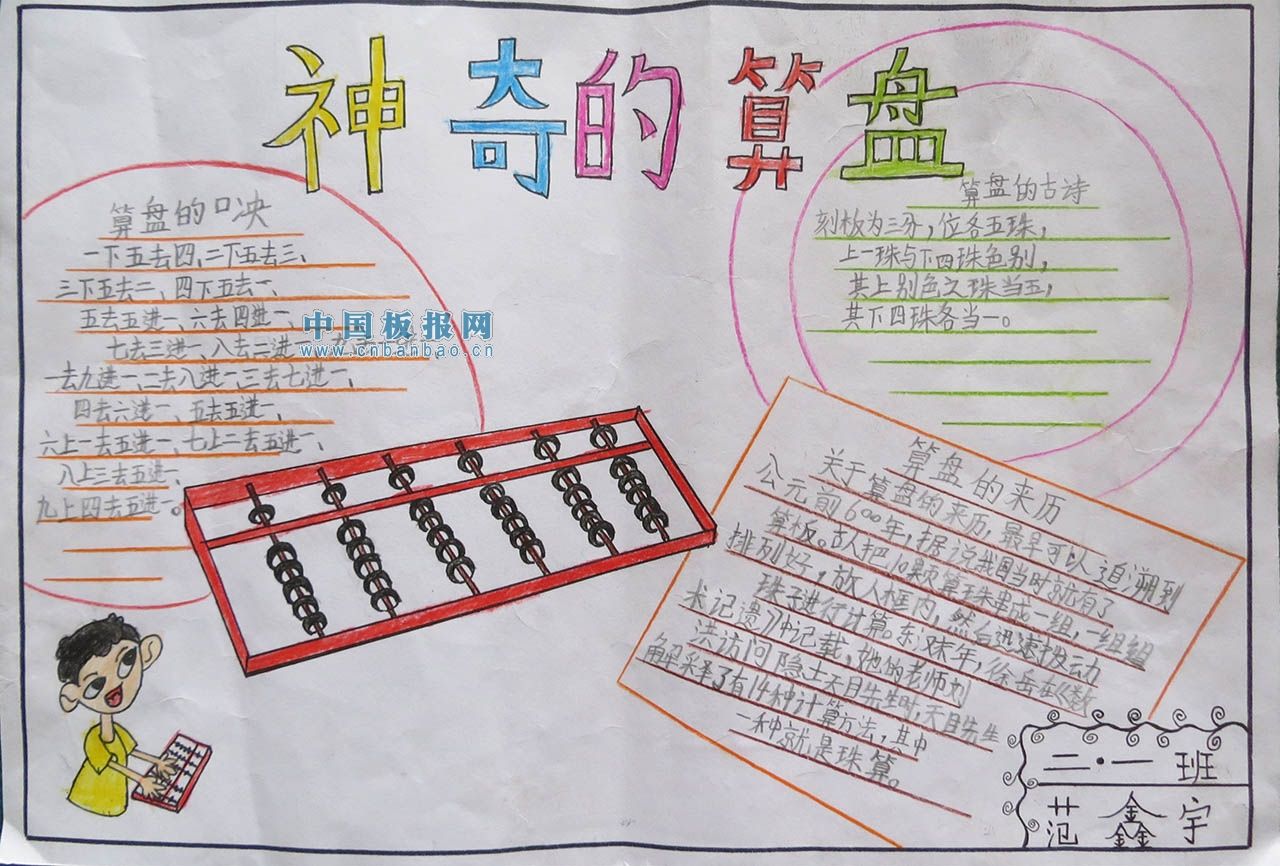 神奇的算盘
算盘的口决
一下五去四、二下五去三、
三下五去二、四下五去一、
五去五进一、六去四进一、
七去三进一、八去二进一、
一去九进一、二去八进一、三去七进一、
四去六进一、五去五进一、
六上一去五进一、七上二去五进一、
八上三去五进一、
九上四去五进一。
中国板报网
www.cnbanbao.cn
算盘的古诗
刻板为三分，位各五珠，
上一珠与下四珠色别，
其上别色之珠当五，
其下四珠各当一。
算盘的来历
关于算盘的来历，最早可以追溯到
公元前600年，据说我国当时就有了
算板。古人把10颗算珠串成一组，一组组
排列好，放入框内，然后迅速拨动
珠子进行计算。东汉末年，徐岳在《数
术记遗》中记载，她的老师刘
洪访问隐士天目先生时，天目先生
解释了有14种计算方法，其中
一种就是珠算。
二·一 班
范鑫宇